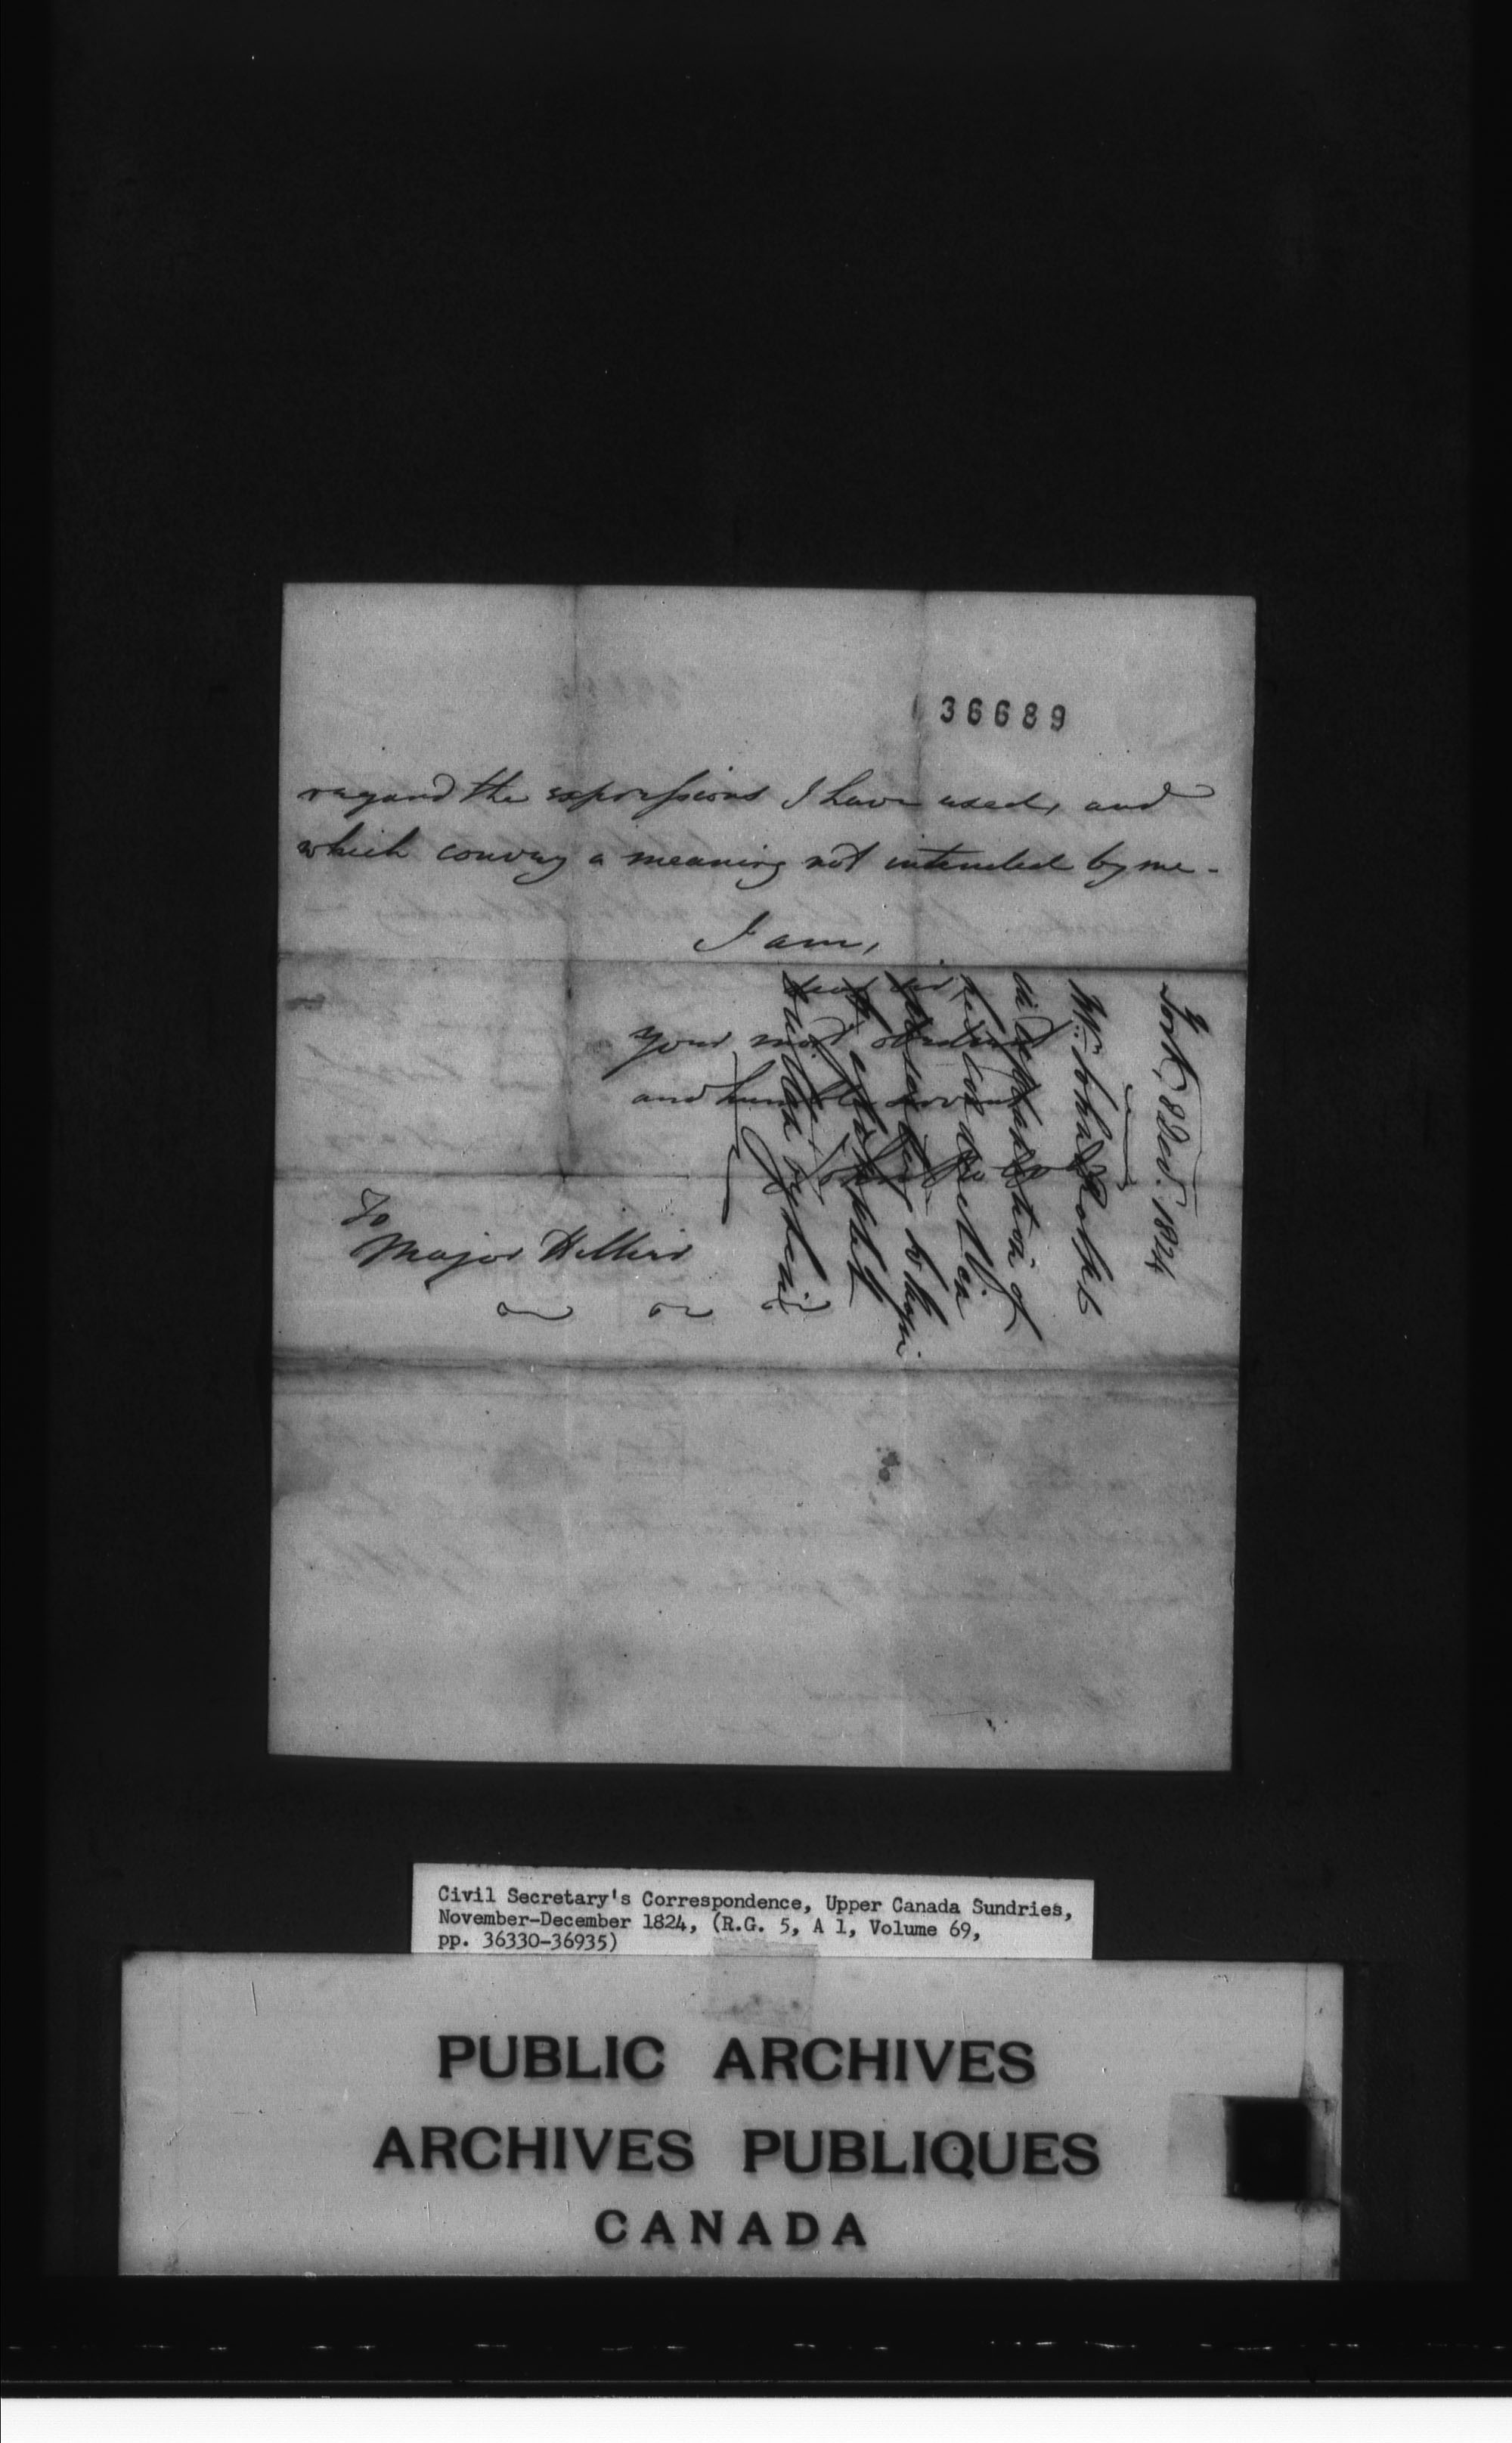 36689
regard the expressions I have used, and
which convey a meaning not intended by me -
I am,
dear sir,
your most obedient
and humble servant
John Rolph
To
Major Hillier
&c &c &c
York, 8 Decr. 1824
Mr. John Rolph
in explanation of
his
to Major
by him
Civil Secretary's Correspondence, Upper Canada Sundries,
November-December 1824, (R.G. 5, A 1, Volume 69,
pp. 36330-36935)
PUBLIC ARCHIVES
ARCHIVES PUBLIQUES
CANADA